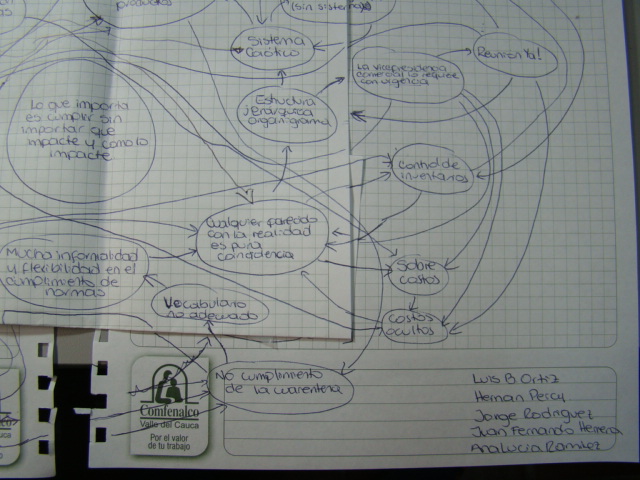 productos
(sin sistema)
Sistema
Caótico
Reunion Ya!
La vicepresidencia
comercial lo requiere
con urgencia
Estructura
jerarquica
organigrama
Lo que importa
es cumplir sin
importar que
impacte y como lo
impacte
Control de
inventarios
Cualquier parecido
con la realidad
es pura
coincidencia
Mucha informalidad
y flexibilidad en el
cumplimiento de
normas
Sobre
costos
Vocabulario
no adecuado
Costos
ocultos
No cumplimiento
de la cuarentena
Comfenalco
Valle del Cauca
Por el valor
de tu trabajo
Luis B. Ortiz
Hernan Percy
Jorge Rodriguez
Juan Fernando Herrera
Ana Lucia Ramirez